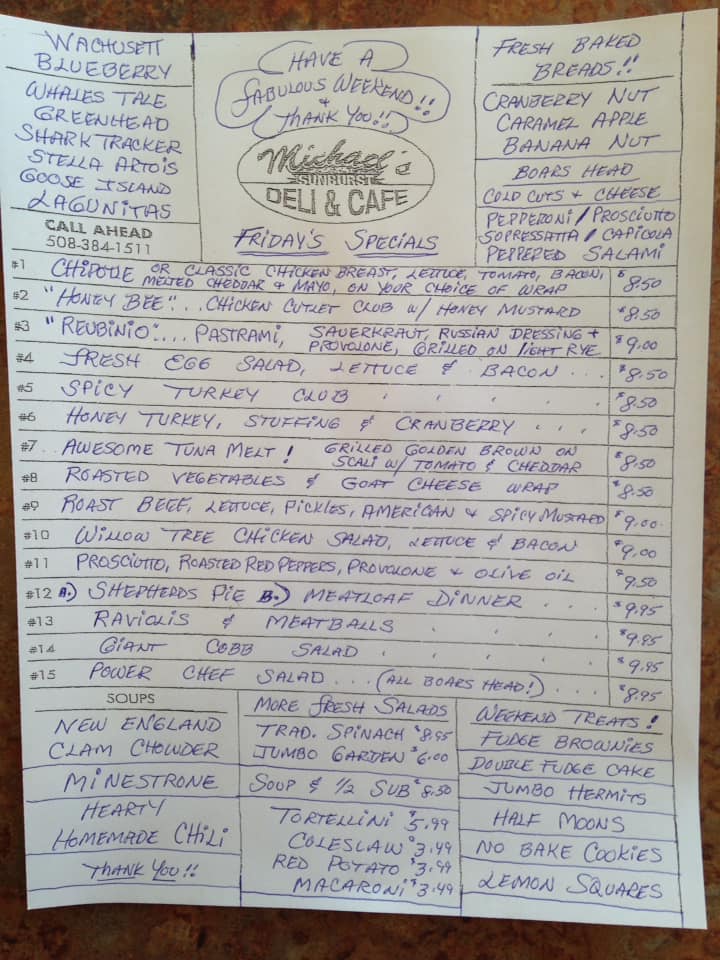 WACHUSETT
BLUEBERRY
WHALES TALE
GREENHEAD
SHARK TRACKER
STELLA ARTOIS
GOOSE ISLAND
LAGUNITAS
CALL AHEAD
508-384-1511
HAVE A
FABULOUS WEEKEND!!
&
THANK YOU!!
Michael's
SUNBURST
DELI & CAFE
FRIDAY'S SPECIALS
FRESH BAKED
BREADS!!
CRANBERRY NUT
CARAMEL APPLE
BANANA NUT
BOARS HEAD
COLD CUTS & CHEESE
PEPPERONI / PROSCIUTTO
SOPRESSATTA / CAPICOLA
PEPPERED SALAMI
#1 CHIPOTLE OR CLASSIC CHICKEN BREAST, LETTUCE, TOMATO, BACON,
MELTED CHEDDAR & MAYO, ON YOUR CHOICE OF WRAP $8.50
#2 "HONEY BEE"... CHICKEN CUTLET CLUB W/ HONEY MUSTARD $8.50
#3 "REUBINIO".... PASTRAMI, SAUERKRAUT, RUSSIAN DRESSING &
PROVOLONE, GRILLED ON LIGHT RYE $9.00
#4 FRESH EGG SALAD, LETTUCE & BACON ... $8.50
#5 SPICY TURKEY CLUB . . . . . $8.50
#6 HONEY TURKEY, STUFFING & CRANBERRY . . . $8.50
#7 .. AWESOME TUNA MELT! GRILLED GOLDEN BROWN ON
SCALI W/ TOMATO & CHEDDAR $8.50
#8 ROASTED VEGETABLES & GOAT CHEESE WRAP $8.50
#9 ROAST BEEF, LETTUCE, PICKLES, AMERICAN & SPICY MUSTARD $9.00
#10 WILLOW TREE CHICKEN SALAD, LETTUCE & BACON $9.00
#11 PROSCIUTTO, ROASTED RED PEPPERS, PROVOLONE & OLIVE OIL $9.50
#12 A.) SHEPHERDS PIE B.) MEATLOAF DINNER . . . $9.95
#13 RAVIOLIS & MEATBALLS . . . . $9.95
#14 GIANT COBB SALAD . . . . $9.95
#15 POWER CHEF SALAD ... (ALL BOARS HEAD!) ... $8.95
SOUPS
NEW ENGLAND
CLAM CHOWDER
MINESTRONE
HEARTY
HOMEMADE CHILI
THANK YOU!!
MORE FRESH SALADS
TRAD. SPINACH $8.95
JUMBO GARDEN $6.00
SOUP & 1/2 SUB $8.50
TORTELLINI $5.99
COLESLAW $3.49
RED POTATO $3.99
MACARONI $3.49
WEEKEND TREATS!
FUDGE BROWNIES
DOUBLE FUDGE CAKE
JUMBO HERMITS
HALF MOONS
NO BAKE COOKIES
LEMON SQUARES